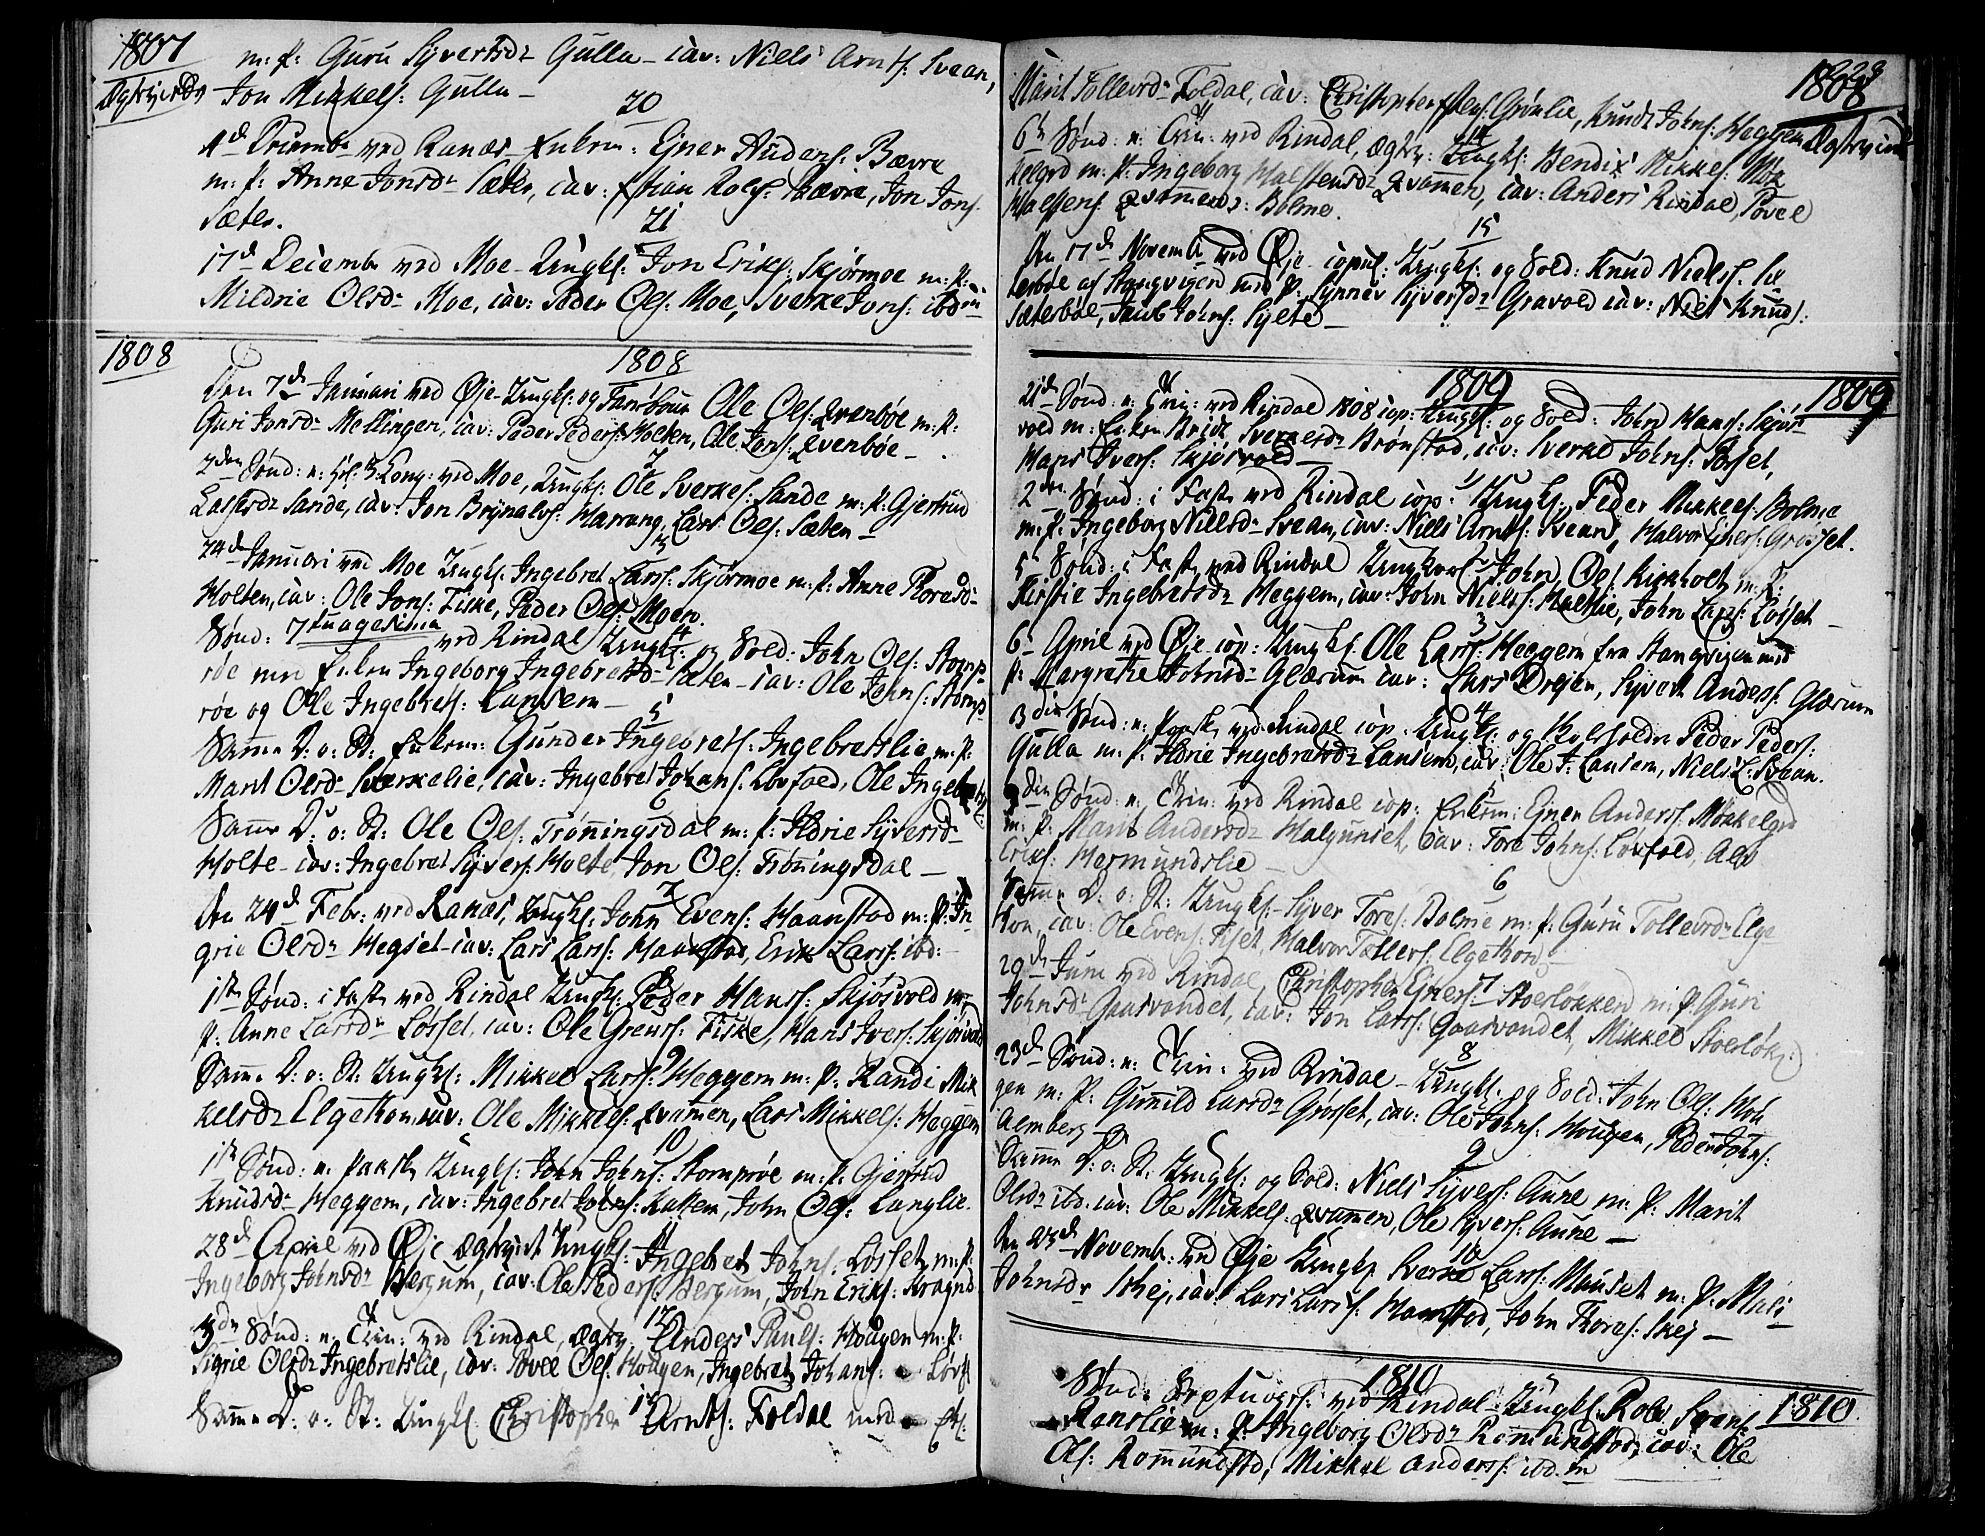 1807
m: P: Guru Syvertsdr Gulla – cav: Niels Arnts: Svean,
Ægteviede
Jon Mikkels: Gulla –
20
4d Decemb: ved Ranæs Enkem: Ejner Anders: Bævre
m: P: Anne Jonsdr Sæter, cav: Stian Rolfs: Bævre, Jon Jons:
Sæter.
21
17d Decembr ved Moe – Ungk: Jon Eriks: Skjørmoe m: P:
Mildrie Olsdr Moe, cav: Peder Ols: Moe, Sverke Jons: ibdm
1808
1808
Den 7d Januari ved Øje – Ungk: og Ole Ols: Qvenbøe m: P:
Guri Jonsdr Mellingen, cav: Peder Peders: Holten, Ole Jons: Qvenbøe –
2
2den Sønd: n: H: 3 Kong: ved Moe, Ungk: Ole Sverkes: Sande m: P: Gjertrud
Larsdr Sande, cav: Jon Brynels: Harrang, Lars Ols: Sæten –
3
24d Januari ved Moe Ungk: Ingebret Lars: Skjørmoe m: P: Anne Thoresdr
Holten, cav: Ole Jons: Fiske, Peder Ols: Moen.
4
Sønd: 7tuagesima ved Rindal Ungk: og Sold: John Ols: Stomp
røe med Enken Ingeborg Ingebretsdr Sæten – cav: Ole Johns: Stomp
røe og Ole Ingebrets: Lansem –
5
Samme D: o: St: Enkem: Gunder Ingebrets: Ingebretslie m: P:
Marit Olsdr Sverkelie, cav: Ingebret Johans: Løsfald, Ole Ingebrets:
6
Samme D: o: St: Ole Ols: Trønningsdal m: P: Ildrie Syversdr
Holte – cav: Ingebret Syvers: Holte, Jon Ols: Trønningsdal –
7
Den 24d Febr: ved Ranæs, Ungk: John Evens: Haanstad m: P: In
grie Olsdr Hegset – cav: Lars Lars: Haanstad, Erik Lars: ibd: –
8
1ste Sønd: i Faste ved Rindal Ungk: Peder Hans: Skjøsvold m:
P: Anne Larsdr Løsset, cav: Ole Grens: Fiske, Hans Ivers: Skjøsvold
9
Samme D: o: St: Ungk: Mikkel Lars: Heggem m: P: Randi Mik
kelsdr Elgethon, cav: Ole Mikkels: Qvamen, Lars Mikkels: Heggem
10
1ste Sønd: n: Paaske Ungk: John Johns: Stomprøe m: P: Gjertrud
Knudsdr Heggem, cav: Ingebret Johns: , John Ols: Langlie.
11
28d April ved Øje Ægteviet Ungk: Ingebret Johns: Løsset m: P:
Ingeborg Johnsdr Bergum, cav: Ole Peders: Bergum, John Eriks: Kragnes
12
3de Sønd: n: Trin: ved Rindal, Ægtev: Anders Pauls: Hougen m: P:
Sigrie Olsdr Ingebretslie, cav: Povel Ols: Hougen, Ingebret Johans:
13
Samme D: o: St: Ungk: Christopher Arnts: Foldal med
1808
Marit Tollevsdr Foldal, cav: Christopher Grønlie, Knud Johns: Heggem
Ægteviede
14
6te Sønd: n: Trin: ved Rindal, Ægtev: Ungk: Bendix Mikkels: Møk
kelgrd m: P: Ingeborg Halstensdr Qvamen, cav: Anders Rindal, Povel
Halstens: Qvamen : Bolme.
15
Den 17d Novemb: ved Øje – cop: Ungk: og Sold: Knud Niels: Sæ
terbøe af Stangvigen med P: Synnev Syversdr Gravold cav: Niels Knuds:
Sæterbøe, Johns: Sylte –
1809
1809
21de Sønd: n: Trin: ved Rindal 1808 cop: Ungk: og Sold: John Hans: Skjøs
vold m: Enken Bride Sverkesdr Brønstad, cav: Sverke Johns: Løsset,
Hans Ivers: Skjøsvold –
1
2den Sønd: i Faste ved Rindal cop: Ungk: Peder Mikkels: Bolme
m: P: Ingeborg Nielsdr Svean, cav: Niels Arnts: Svean, Halvor Einers: Grøsset.
2
5 Sønd: i Faste ved Rindal Ungkarl John Ols: Kirkholt m: P:
Kirstie Ingebretsdr Heggem, cav: John Niels: , John Lars: Løsset –
3
6 April ved Øje cop: Ungk: Ole Lars: Heggem fra Stangvigen med
P: Margrethe Johnsdr Glærum cav: Lars Drejer, Syvert Anders: Glærum
4
3die Sønd: n: Paaske ved Rindal cop: Ungk: og Peder Peders:
Gulla m: P: Ildrie Ingebretsdr Lansem, cav: Ole I: Lansem, Niels L: Svean.
5
Sønd: n: Trin: ved Rindal cop: Enkem: Ejner Anders: Møkkelgrd
m: P: Marit Andersdr Halgunset, cav: Tore Johns: Løsfald,
Eriks: Hermundslie –
6
Samme D: o: St: Ungk: Syver Tores: Bolme m: P: Guru Tollevsdr Elge
thon, cav: Ole Evens: Fiset, Halvor Tollevs: Elgethon –
7
29d Juni ved Rindal, Christopher Ejners: Stoerløkken m: P: Guri
Johnsdr Gaasvandet, cav: Jon Lars: Gaasvandet, Mikkel Stoerløk:
8
23d Sønd: n: Trin: ved Rindal – Ungk: og Sold: John Ols: Hou
gen m: P: Gunild Larsdr Grøsset, cav: Ole Johns: Hougen, Peder Johns:
Almberg –
9
Samme D: o: St: Ungk: og Sold: Niels Syvers: Aune m: P: Marit
Olsdr ibd. cav: Ole Mikkels: Qvamen, Ole Syvers: Aune –
10
Den 23d Novemb: ved Øje Ungk: Sverke Lars: Hauset m: P: Mali
Johnsdr Skej, cav: Lars Lars: Hamstad, John Thores: Skej –
1810
Sønd: Septuages: ved Rindal – Ungk: Role Svans:
1810
Ranslie m: P: Ingeborg Olsdr Romundstad, cav: Ole
Ols: Romundstd, Mikkel Anders: ibd.m